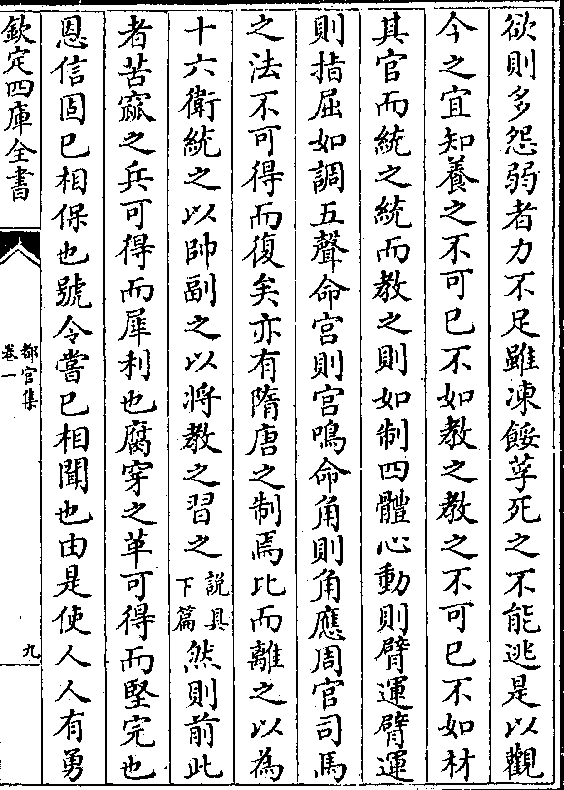 欲則多怨弱者力不足雖凍餒莩死之不能逃是以觀
今之宜知養之不可已不如教之教之不可已不如材
其官而統之統而教之則如制四體心動則臂運臂運
則指屈如調五聲命宮則宮鳴命角則角應周官司馬
之法不可得而復矣亦有隋唐之制焉比而離之以為
十六衛統之以帥副之以將教之習之說具下篇然則前此
者苦窳之兵可得而犀利也腐穿之革可得而堅完也
恩信固已相保也號令嘗已相聞也由是使人人有勇
欽定四庫全書
都官集
卷一
九